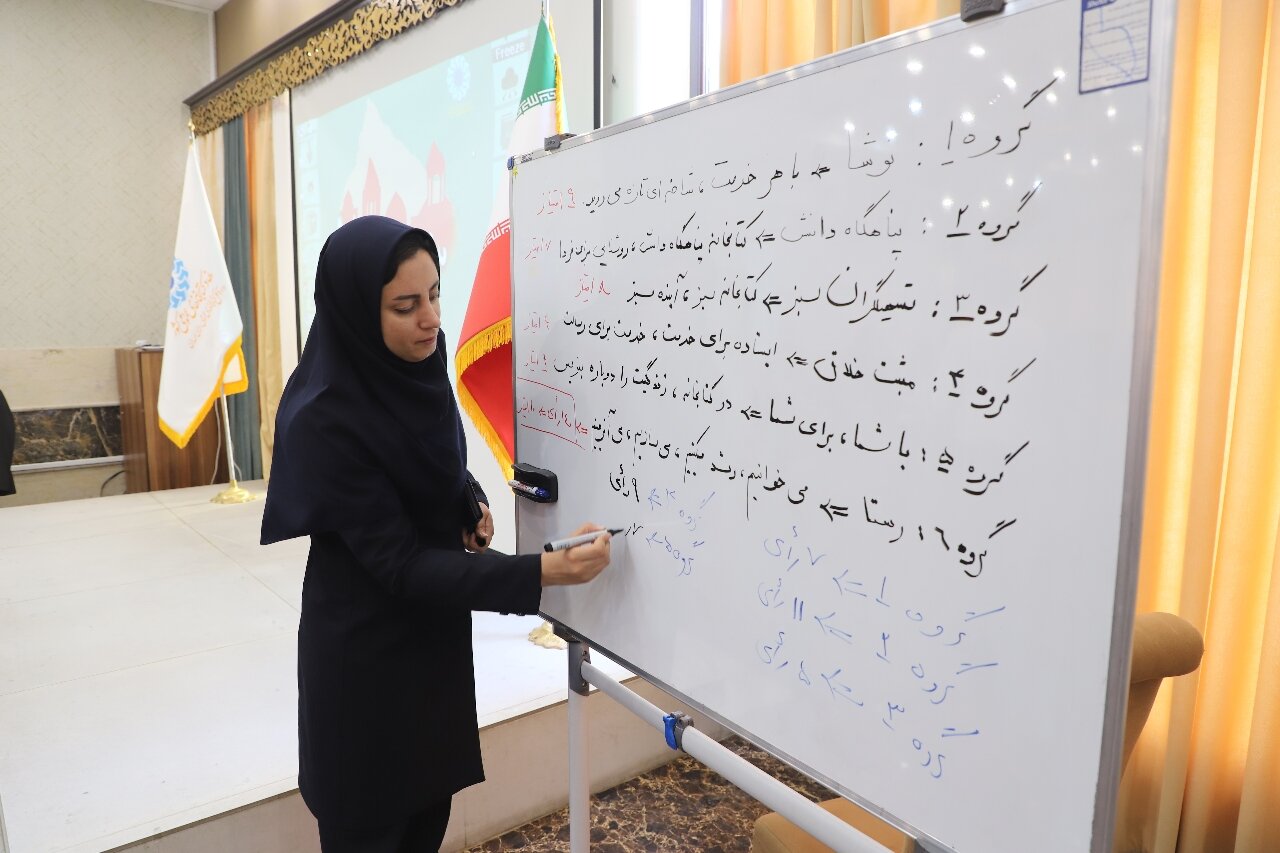 Freeze
گروه ۱ : نوشا => با هر خدمت، شاخه‌ای تازه می‌روید. ۹ امتیاز
گروه ۲ : پناهگاه دانش => کتابخانه پناهگاه دانش، روشنایی برای فردا ۷ امتیاز
گروه ۳ : تسهیلگران سبز => کتابخانه سبز، آینده سبز ۸ امتیاز
گروه ۴ : مثبت خلاق => ایستاده برای خدمت، خدمت برای رسالت ۹ امتیاز
گروه ۵ : با شما، برای شما => در کتابخانه، زندگیت را دوباره بنویس ۹ امتیاز
گروه ۶ : رستا => می‌خوانیم، رشد میکنیم، می‌سازیم، می‌آفرینیم => ۱۰ امتیاز
گروه ۱ => ۷ رأی
گروه ۲ => ۱۱ رأی
گروه ۳ => ۵ رأی
گروه ۴ => ۹ رأی
گروه ۵ => ۷